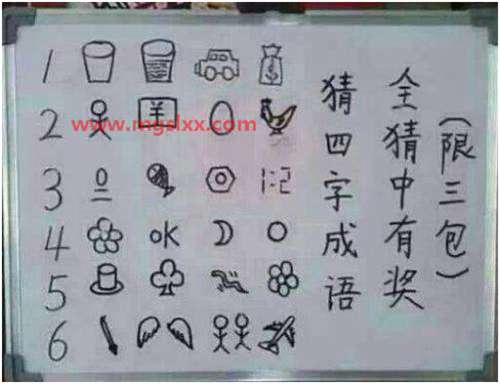 1
2 ¥
www.mgslxx.com
3 1:2
4 OK
5
6
猜四字成语
全猜中有奖
(限三包)